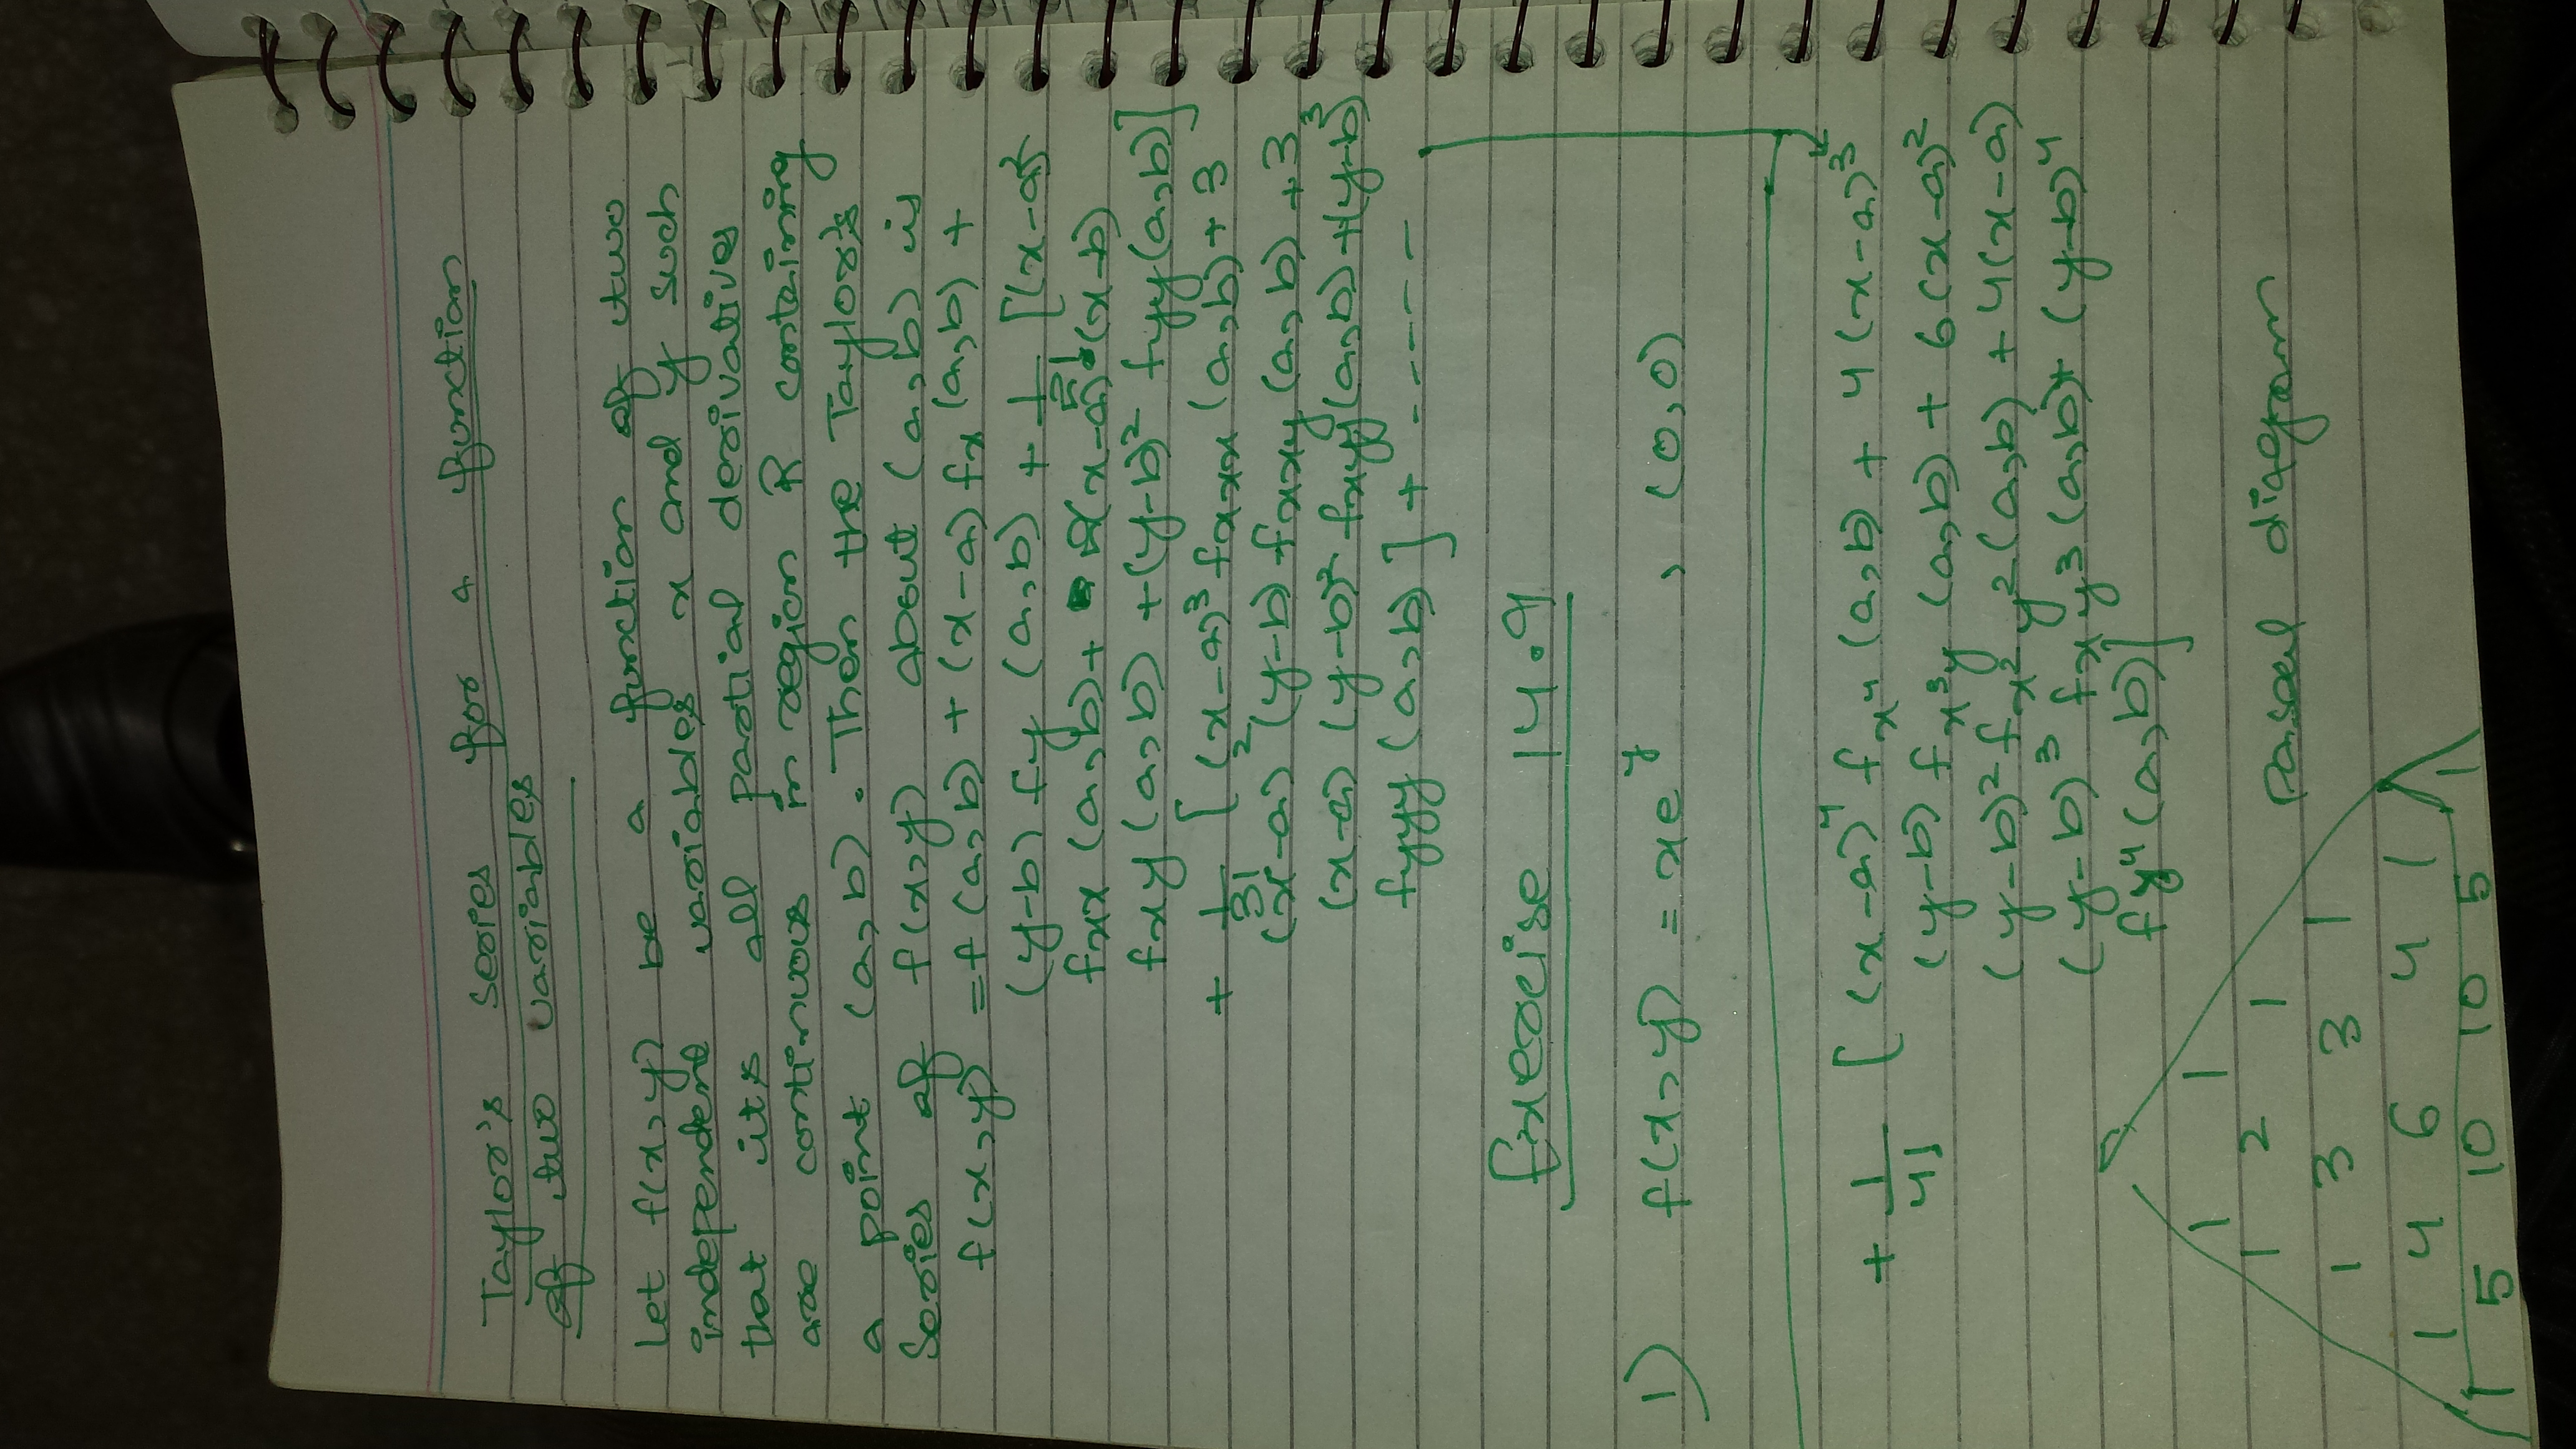 Taylor's series for a function
of two variables
Let f(x,y) be a function of two
independent variables x and y such
that its all partial derivatives
are continuous in region R containing
a point (a,b). Then the Taylor's
Series of f(x,y) about (a,b) is
f(x,y) = f(a,b) + (x-a) fx (a,b) +
(y-b) fy (a,b) + 1/2! [(x-a)²
fxx (a,b) + 2(x-a) (x-b)
fxy (a,b) + (y-b)² fyy(a,b)]
+ 1/3! [(x-a)³ fxxx (a,b) + 3
(x-a)² (y-b) fxxy (a,b) + 3
(x-a) (y-b)² fxyy(a,b) + (y-b)³
fyyy (a,b)] + ------
Exercise 14.9
1) f(x,y) = xe^y , (0,0)
+ 1/4! [(x-a)⁴ fx⁴ (a,b) + 4(x-a)³
(y-b) fx³y (a,b) + 6(x-a)²
(y-b)² fx²y² (a,b) + 4(x-a)
(y-b)³ fxy³ (a,b) + (y-b)⁴
fy⁴ (a,b)]
1 1
1 2 1
Pascal diagram
1 3 3 1
1 4 6 4 1
1 5 10 10 5 1